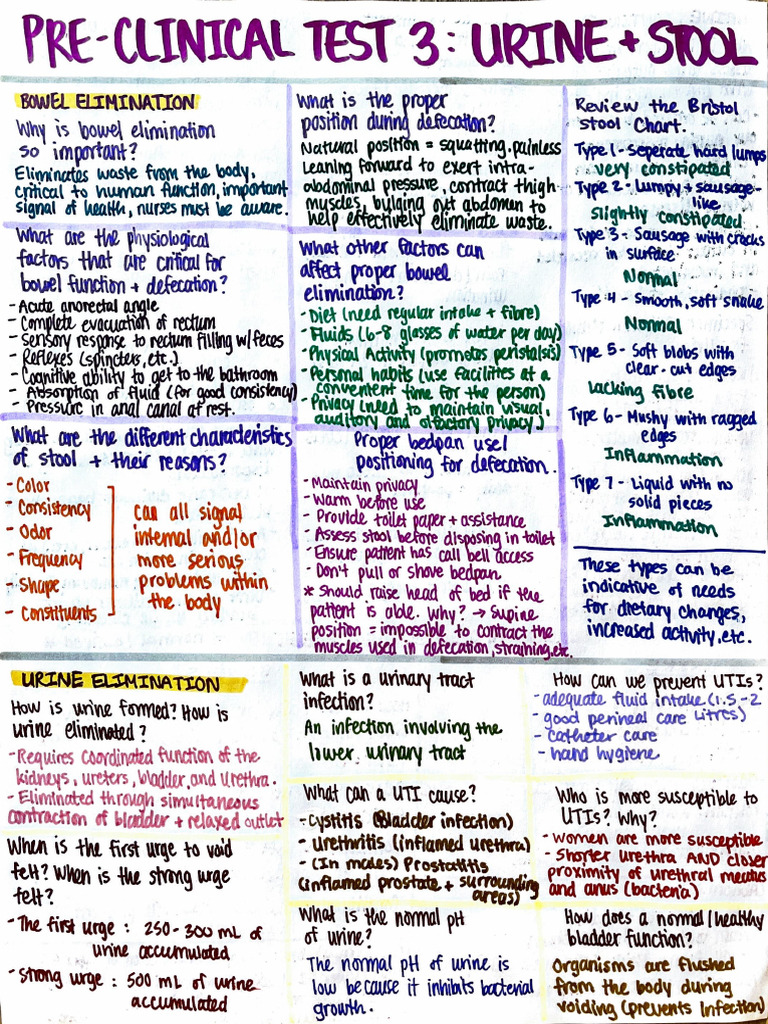 PRE-CLINICAL TEST 3: URINE + STOOL
BOWEL ELIMINATION
Why is bowel elimination
so important?
Eliminates waste from the body,
critical to human function, important
signal of health, nurses must be aware.
What are the physiological
factors that are critical for
bowel function + defecation?
- Acute anorectal angle
- Complete evacuation of rectum
- Sensory response to rectum filling w/feces
- Reflexes (spincters, etc.)
- Cognitive ability to get to the bathroom
- Absorption of fluid (for good consistency)
- Pressure in anal canal at rest.
What are the different characteristics
of stool + their reasons?
- Color
- Consistency
- Odor
- Frequency
- Shape
- Constituents
can all signal
internal and/or
more serious
problems within
the body
What is the proper
position during defecation?
Natural position = squatting. painless
Leaning forward to exert intra-
abdominal pressure, contract thigh
muscles, bulging out abdomen to
help effectively eliminate waste.
What other factors can
affect proper bowel
elimination?
- Diet (need regular intake + fibre)
- Fluids (6-8 glasses of water per day)
- Physical Activity (promotes peristalsis)
- Personal habits (use facilities at a
convenient time for the person)
- Privacy (need to maintain visual,
auditory and olfactory privacy)
Proper bedpan use/
positioning for defecation.
- Maintain privacy
- Warm before use
- Provide toilet paper + assistance
- Assess stool before disposing in toilet
- Ensure patient has call bell access
- Don't pull or shove bedpan
* Should raise head of bed if the
patient is able. Why? → Supine
position = impossible to contract the
muscles used in defecation, straining, etc.
Review the Bristol
stool Chart.
Type 1 - Seperate hard lumps
very constipated
Type 2 - Lumpy + sausage-
like
slightly constipated
Type 3 - Sausage with cracks
in surface
Normal
Type 4 - Smooth, soft snake
Normal
Type 5 - Soft blobs with
clear-cut edges
Lacking fibre
Type 6 - Mushy with ragged
edges
Inflammation
Type 7 - Liquid with no
solid pieces
Inflammation
These types can be
indicative of needs
for dietary changes,
increased activity, etc.
URINE ELIMINATION
How is urine formed? How is
urine eliminated?
- Requires coordinated function of the
kidneys, ureters, bladder, and urethra.
- Eliminated through simultaneous
contraction of bladder + relaxed outlet
When is the first urge to void
felt? When is the strong urge
felt?
- The first urge: 250-300 mL of
urine accumulated
- Strong urge: 500 mL of urine
accumulated
What is a urinary tract
infection?
An infection involving the
lower urinary tract
What can a UTI cause?
- Cystitis (Bladder infection)
- Urethritis (inflamed urethra)
- (In males) Prostatitis
(inflamed prostate + surrounding
areas)
What is the normal pH
of urine?
The normal pH of urine is
low because it inhibits bacterial
growth.
How can we prevent UTIs?
- adequate fluid intake (1.5-2
litres)
- good perineal care
- catheter care
- hand hygiene
Who is more susceptible to
UTIs? Why?
- women are more susceptible
- Shorter urethra AND closer
proximity of urethral meatus
and anus (bacteria)
How does a normal/healthy
bladder function?
Organisms are flushed
from the body during
voiding (prevents infection)